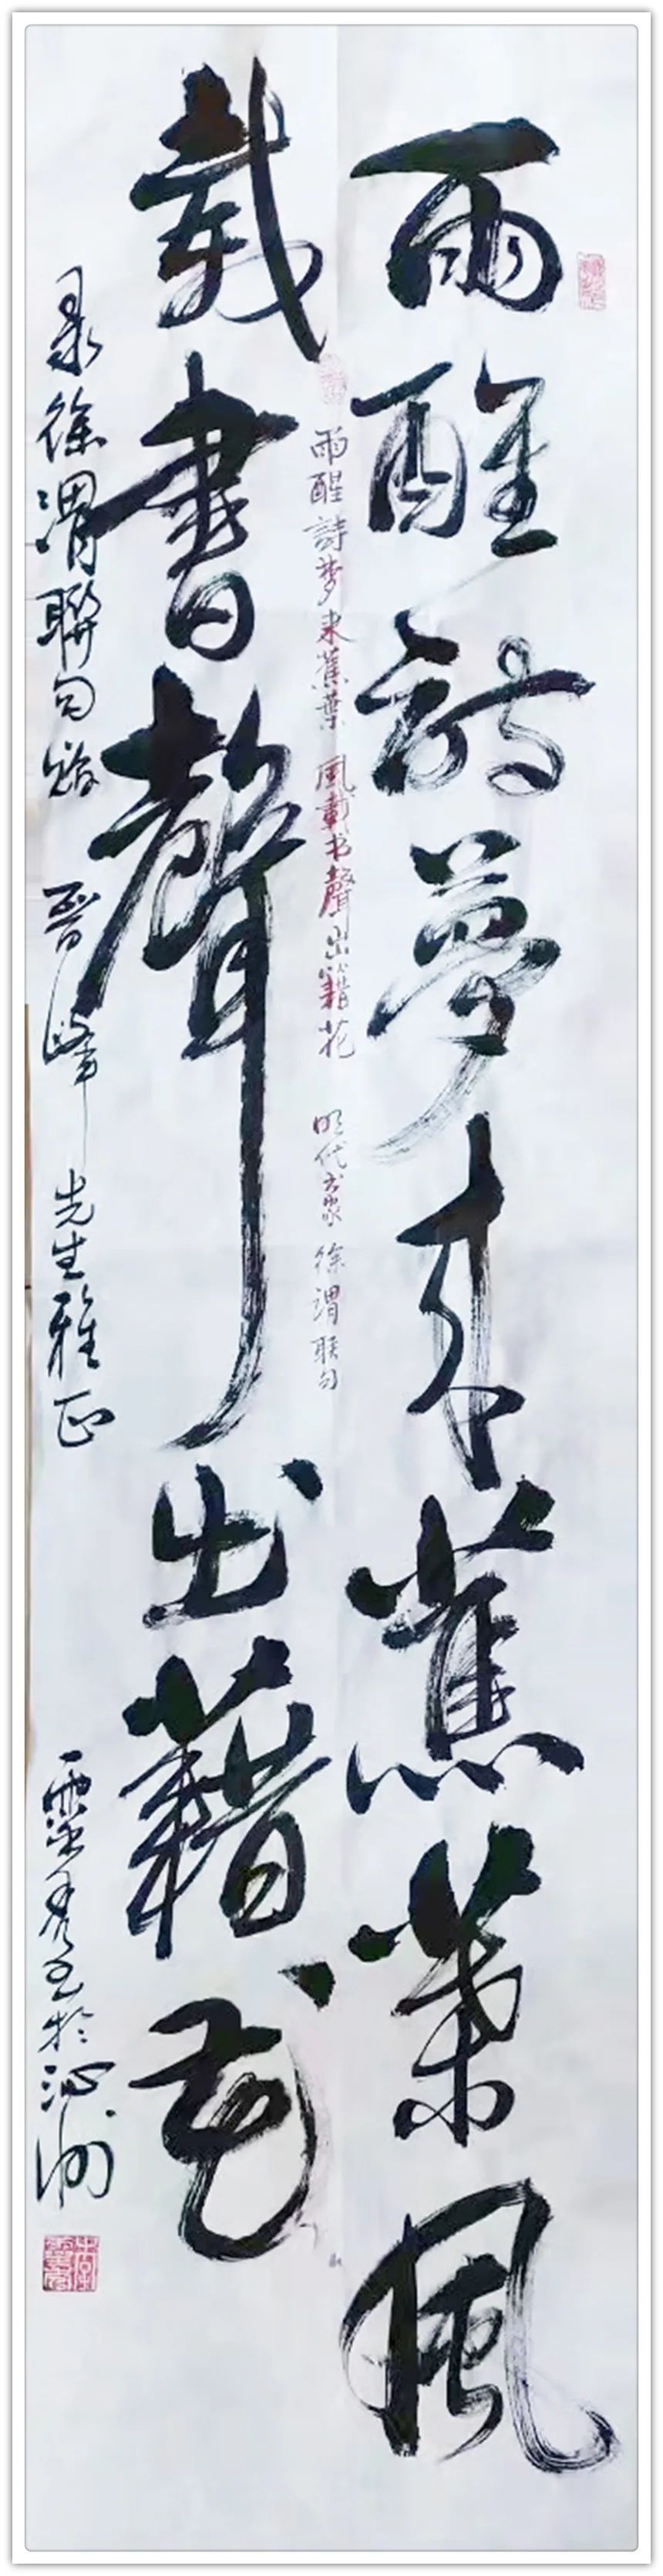 雨醒詩夢來蕉葉風
載書聲出藉花
雨醒詩夢來蕉葉 風載书聲出籍花 明代書家 徐渭联句
录徐渭聯句贻 晋峰 先生雅正 於沁州